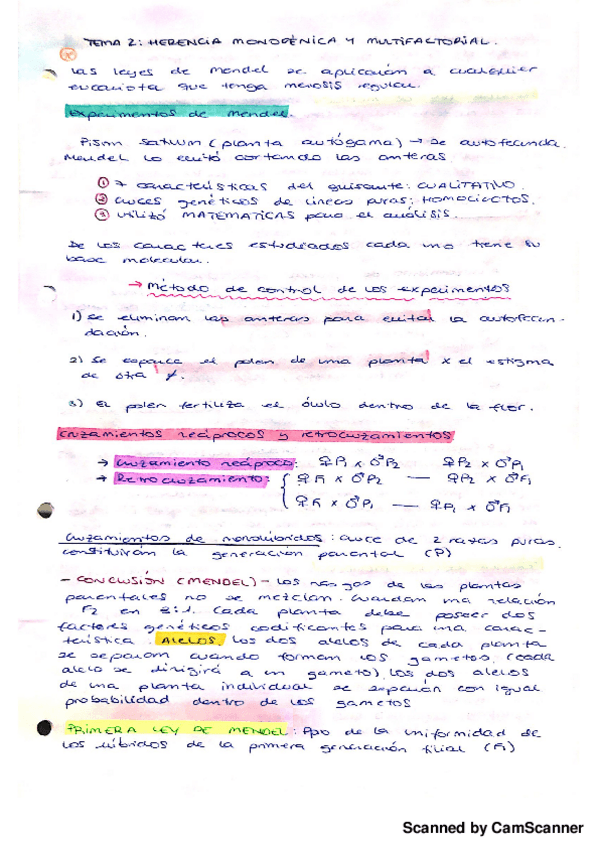 TEMA 2: HERENCIA MONOGÉNICA Y MULTIFACTORIAL.
Las leyes de Mendel se aplicarán a cualquier
eucariota que tenga meiosis regular.
Experimentos de Mendel.
Pisum sativum (planta autógama) → se autofecunda.
Mendel lo evitó cortando las anteras.
① 7 características del guisante: CUALITATIVO.
② cruces genéticos de líneas puras: HOMOCIGOTOS.
③ utilizó MATEMATICAS para el análisis.
De los caracteres estudiados cada uno tiene su
base molecular.
→ Método de control de los experimentos
1) se eliminan las anteras para evitar la autofecun-
dación.
2) Se esparce el polen de una planta x el estigma
de otra
3) El polen fertiliza el óvulo dentro de la flor.
cruzamientos recíprocos y retrocruzamientos
→ cruzamiento recíproco: ♀P1 x ♂P2 ♀P2 x ♂P1
→ Retrocruzamiento: { ♀F1 x ♂P2 — ♀P2 x ♂F1
♀F1 x ♂P1 — ♀P1 x ♂F1
Cruzamientos de monohíbridos: cruce de 2 razas puras.
constituirán la generación parental (P)
- CONCLUSIÓN (MENDEL) - Los rasgos de las plantas
parentales no se mezclan. Guardan una relación
F2 en 3:1. Cada planta debe poseer dos
factores genéticos codificantes para una carac-
terística. ALELOS. Los dos alelos de cada planta
se separan cuando forman los gametos. (cada
alelo se dirigirá a un gameto), los dos alelos
de una planta individual se separan con igual
probabilidad dentro de los gametos
PRIMERA LEY DE MENDEL: Ppo de la uniformidad de
los híbridos de la primera generación filial (F1)
Scanned by CamScanner